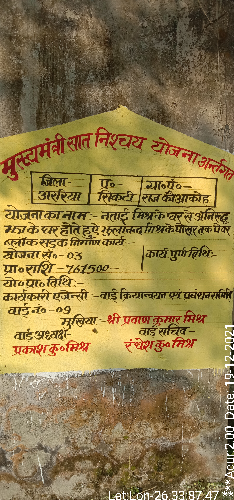 मुख्यमंत्री सात निश्चय योजना अन्तर्गत
जिला- प्र०- ग्रा०पं०-
अररिया सिकटी
योजना का नाम- नताई मिश्र के घर से अनिरुद्ध
झा के घर होते हुए के घर तक पेवर
ब्लॉक सड़क निर्माण कार्य-
योजना सं०- 03 कार्य पुर्ण तिथि:-
प्रा० राशि - 761500-
यो० प्रा० तिथि:-
कार्यकारी एजेन्सी - वार्ड क्रियान्वयन एवं प्रबंधन समिति
वार्ड नं०- 09
मुखिया- श्री प्रवीण कुमार मिश्र
वार्ड अध्यक्ष- वार्ड सचिव-
प्रकाश कु० मिश्र कु० मिश्र
Lat:Lon-26.33,87.47 ***Acur:2.00, Date: 19-12-2021